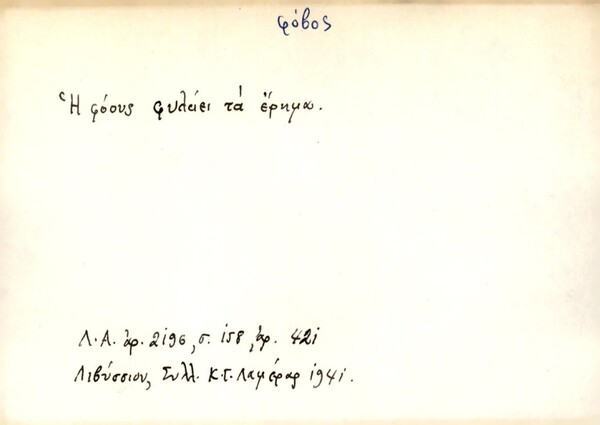 φόβος
Ἡ φόους φυλάει τὰ ἔρημα.
Λ.Α. ἀρ. 2196, σ. 158, ἀρ. 421
Λιβύσσιον, Συλλ. Κ.Γ. Λαμέρας 1941.